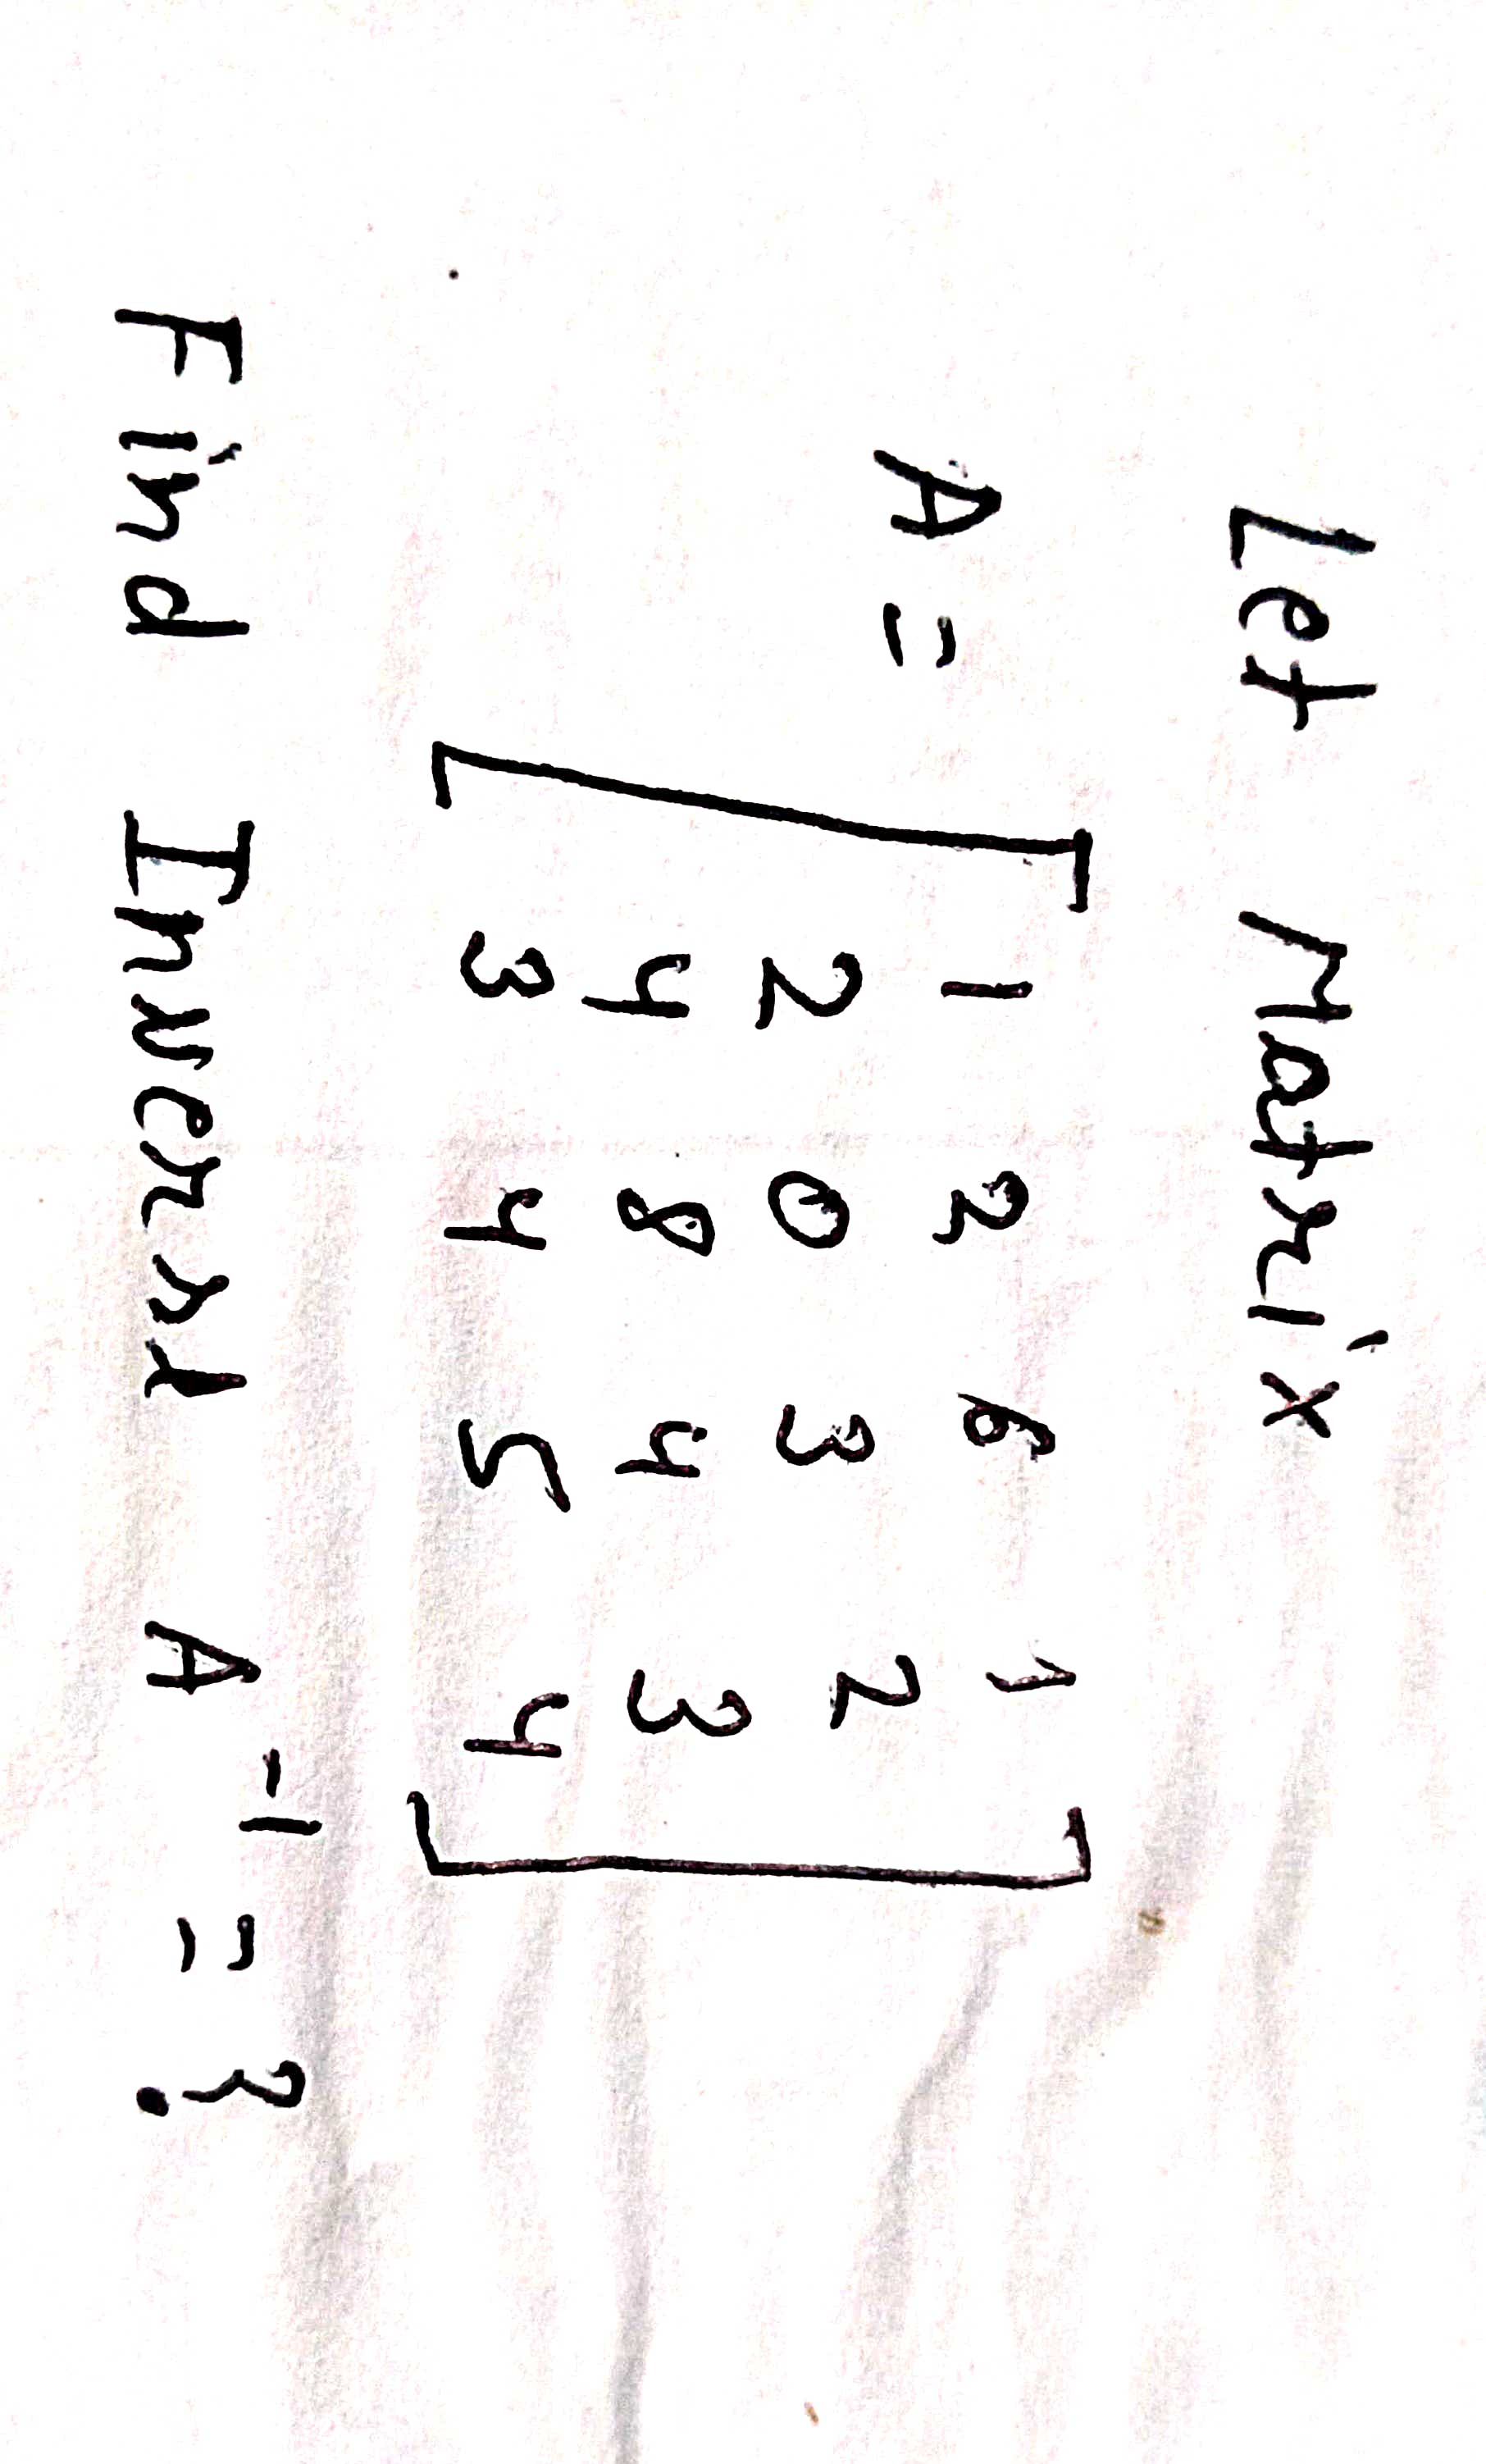 Let Matrix
A = [ 1 2 6 1
2 0 3 2
4 8 4 3
3 4 5 4 ]
Find Inverse A-1 = ?